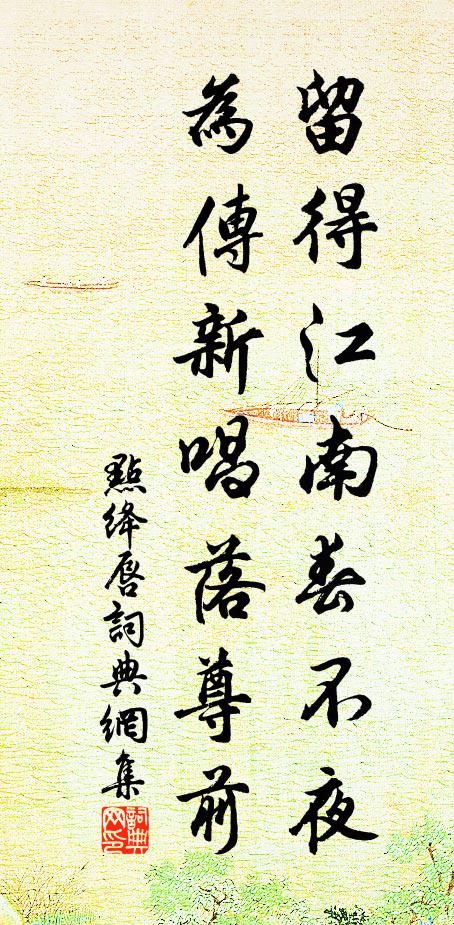 留得江南春不夜
為傳新唱落尊前
點絳唇詞典網集
詞典
网印